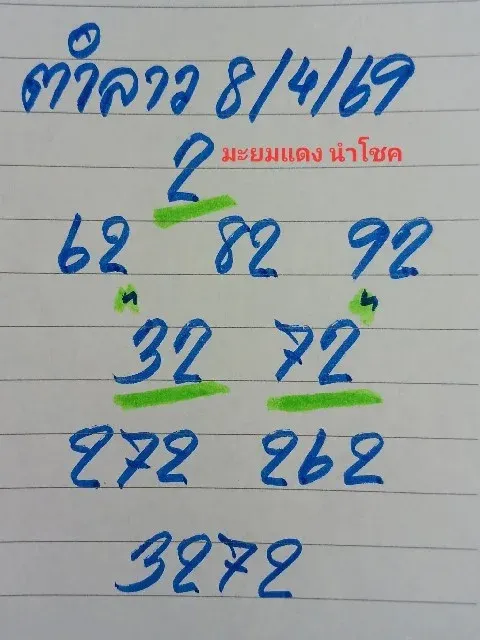 ตำลาว 8/4/69
2 มะยมแดง นำโชค
62 82 92
ท ท
32 72
272 262
3272